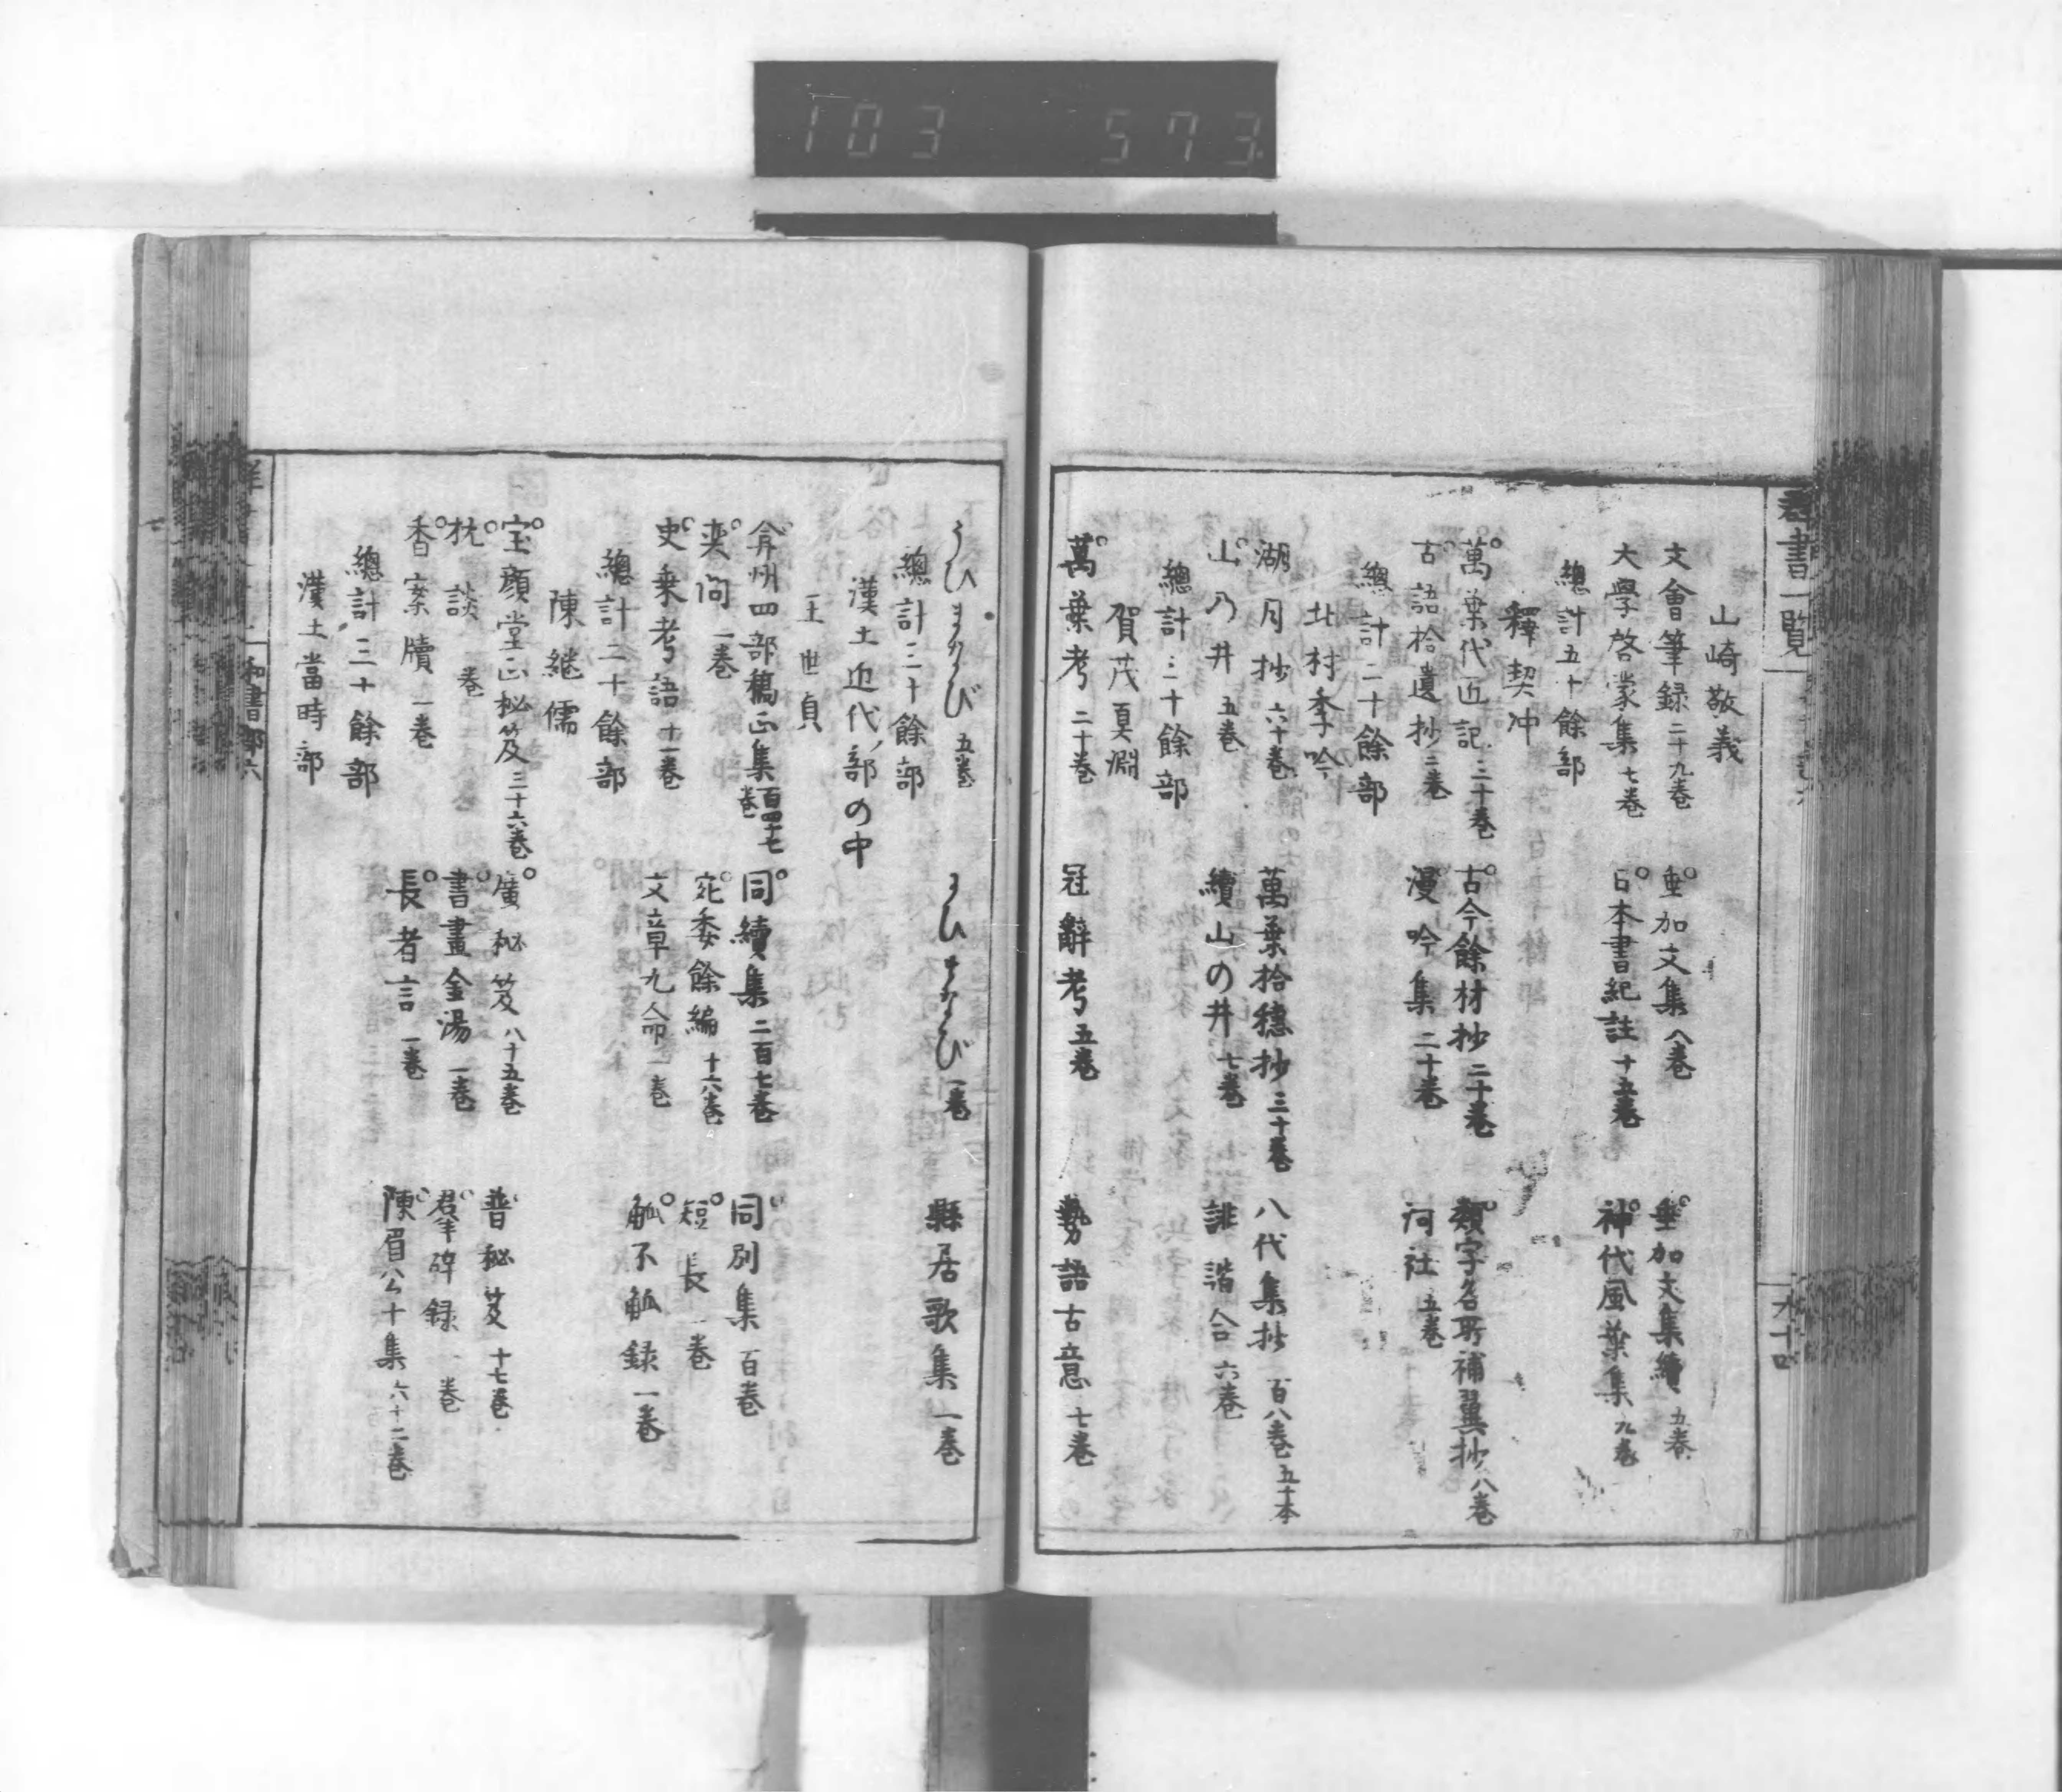 103 573
群書一覧
山崎敬義
文會筆録二十九巻 垂加文集八巻 垂加文集續五巻
大學啓蒙集七巻 日本書紀註十五巻 神代風葉集九巻
總計五十餘部
釋契冲
萬葉代匠記三十巻 古今餘材抄二十巻 類字名所補翼抄八巻
古語拾遺抄二巻 漫吟集二十巻 河社五巻
總計二十餘部
北村季吟
湖月抄六十巻 萬葉拾穗抄三十巻 八代集抄百八巻五十本
山乃井五巻 續山の井七巻 誹諧合六巻
總計三十餘部
賀茂真淵
萬葉考二十巻 冠辭考五巻 勢語古意七巻
うひまなび五巻 にひまなび一巻 縣居歌集一巻
總計三十餘部
漢土近代ノ部の中
王世貞
弇州四部稿正集百四十七巻 同續集二百七巻 同別集百巻
奕問一巻 宛委餘編十六巻 短長一巻
史乗考語十一巻 文章九命一巻 觚不觚録一巻
總計二十餘部
陳継儒
宝顔堂正秘笈三十六巻 廣秘笈八十五巻 普秘笈十七巻
枕談 巻 書畫金湯一巻 群碎録一巻
香案牘一巻 長者言一巻 陳眉公十集六十二巻
總計三十餘部
漢土當時部
和書部六